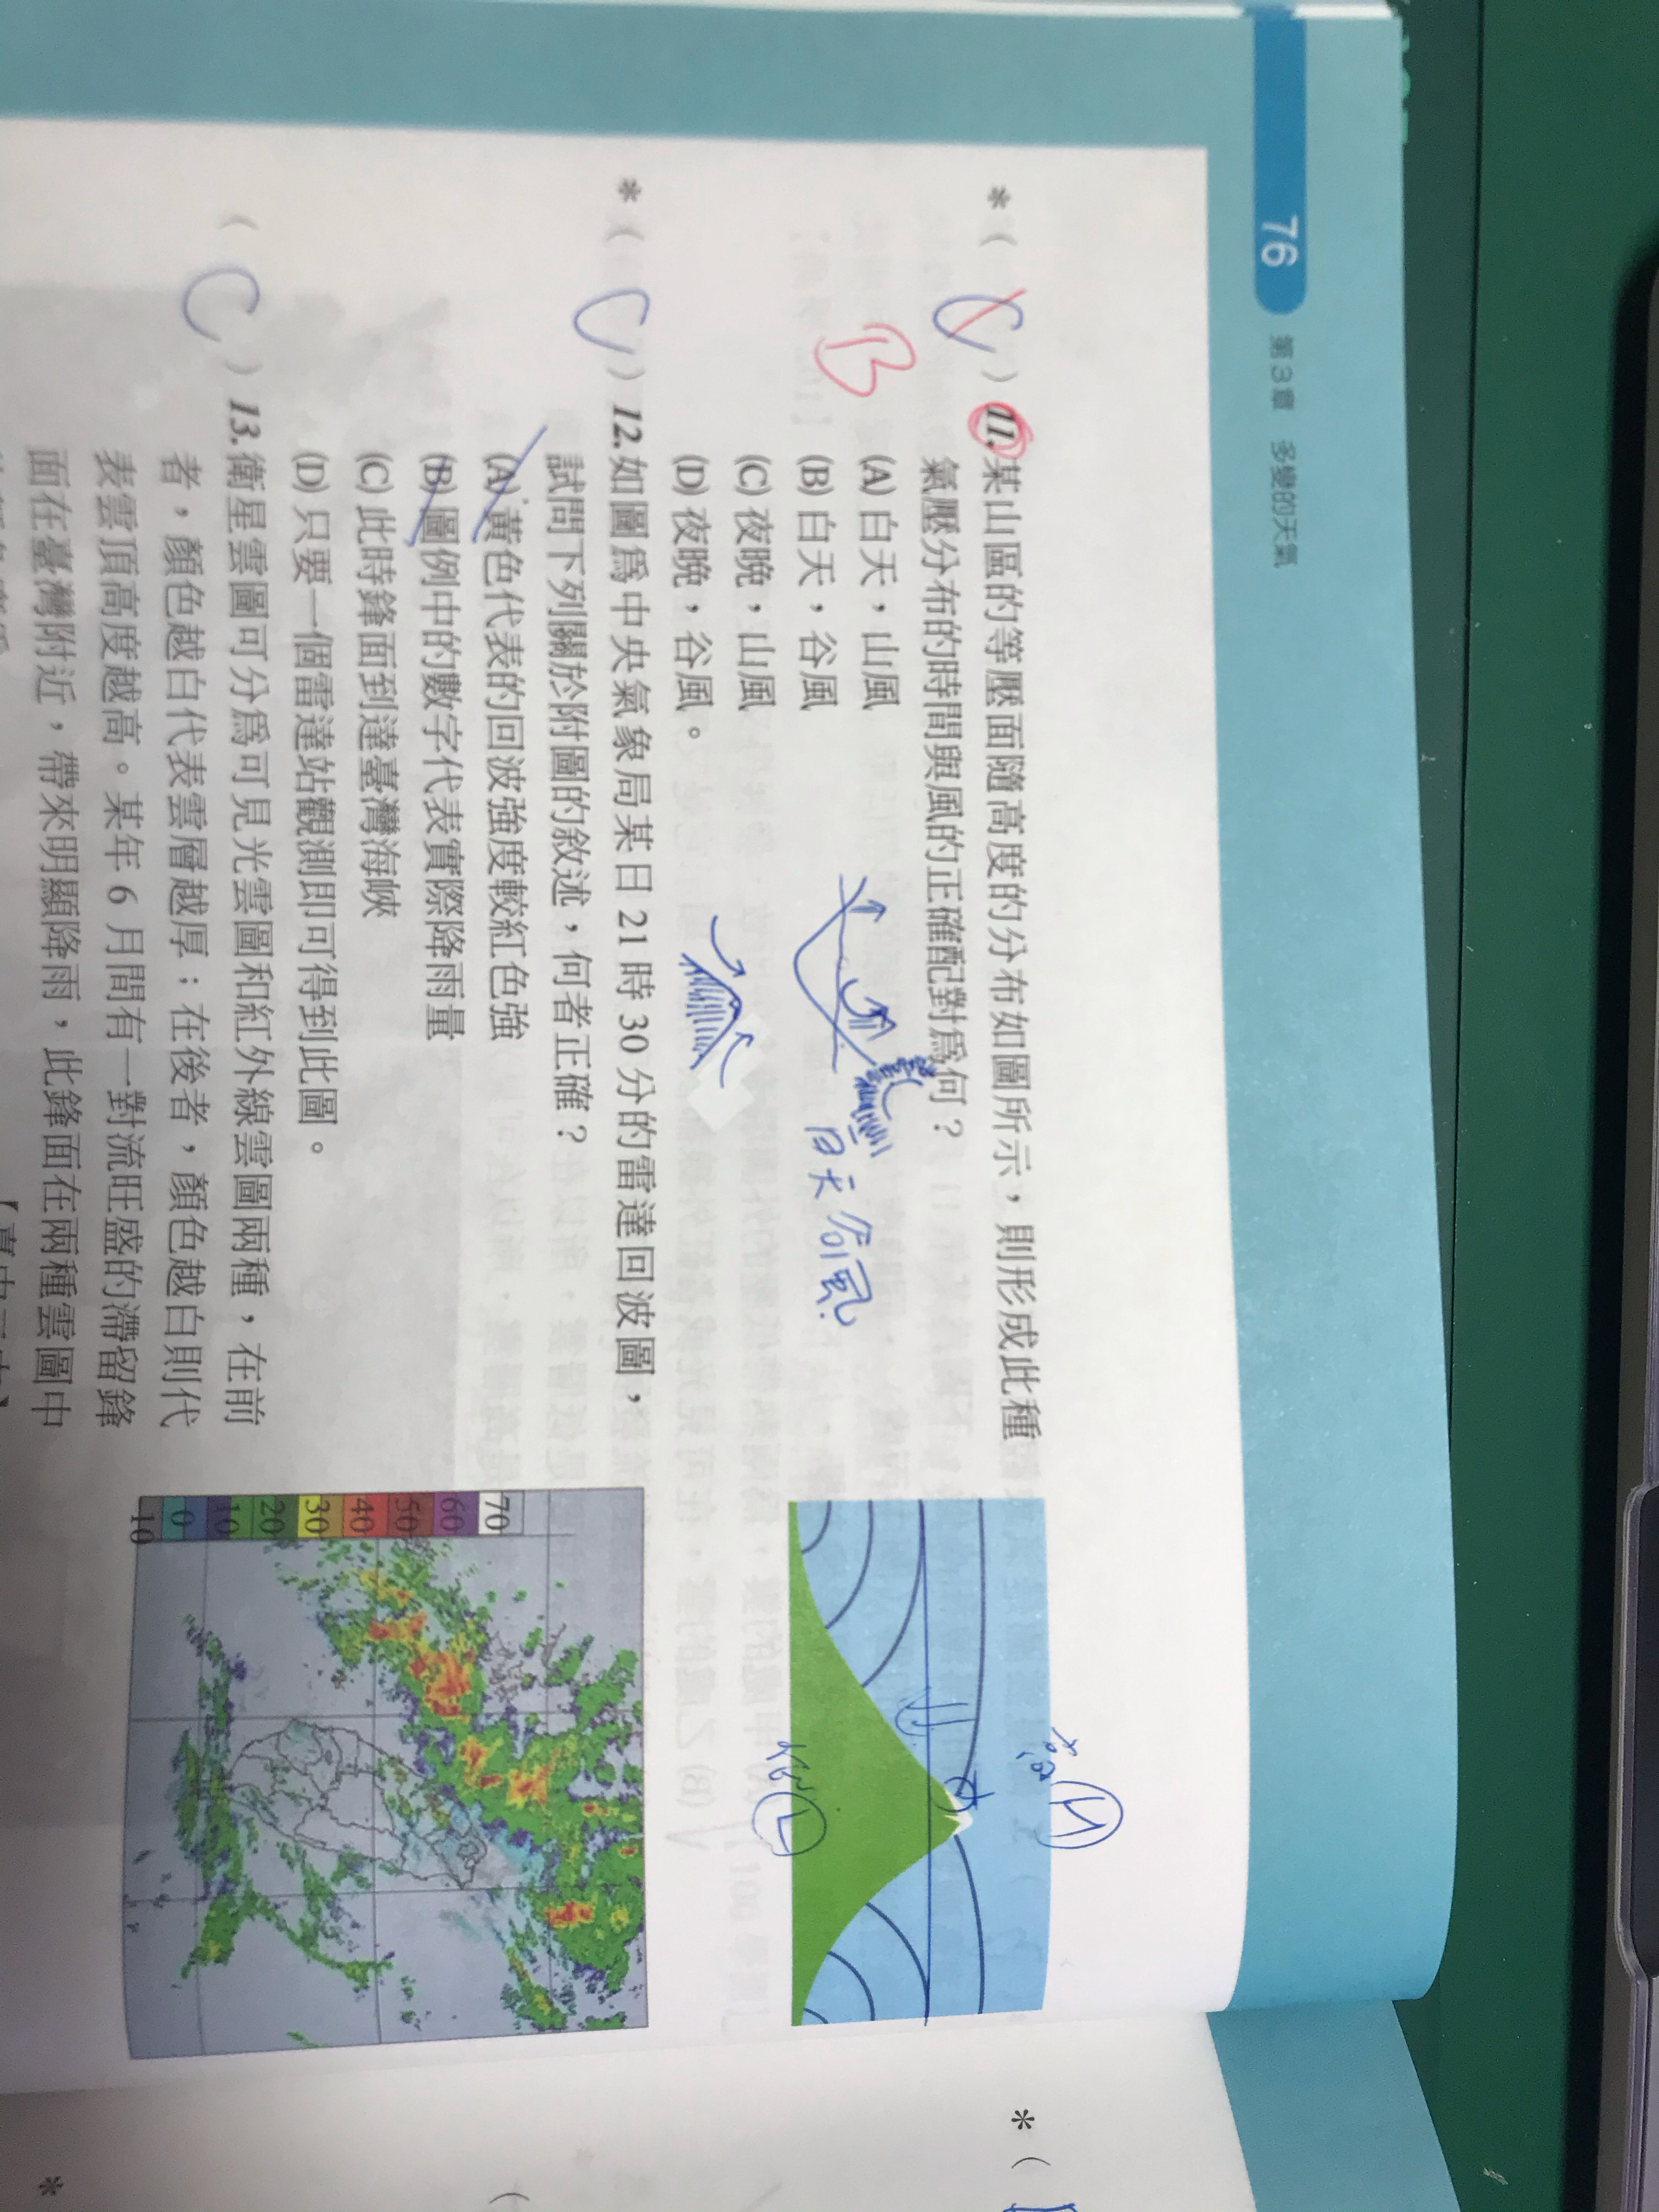 76 第3章 多變的天氣
*( C ) 11.某山區的等壓面隨高度的分布如圖所示，則形成此種
氣壓分布的時間與風的正確配對為何？
B
(A) 白天，山風
(B) 白天，谷風
(C) 夜晚，山風
(D) 夜晚，谷風。
白天谷風
H
L
*( C ) 12.如圖為中央氣象局某日21時30分的雷達回波圖，
試問下列關於附圖的敘述，何者正確？
(A) 黃色代表的回波強度較紅色強
(B) 圖例中的數字代表實際降雨量
(C) 此時鋒面到達臺灣海峽
(D) 只要一個雷達站觀測即可得到此圖。
70
60
50
40
30
20
10
0
-10
( C ) 13.衛星雲圖可分為可見光雲圖和紅外線雲圖兩種，在前
者，顏色越白代表雲層越厚；在後者，顏色越白則代
表雲頂高度越高。某年6月間有一對流旺盛的滯留鋒
面在臺灣附近，帶來明顯降雨，此鋒面在兩種雲圖中
*(
*
(